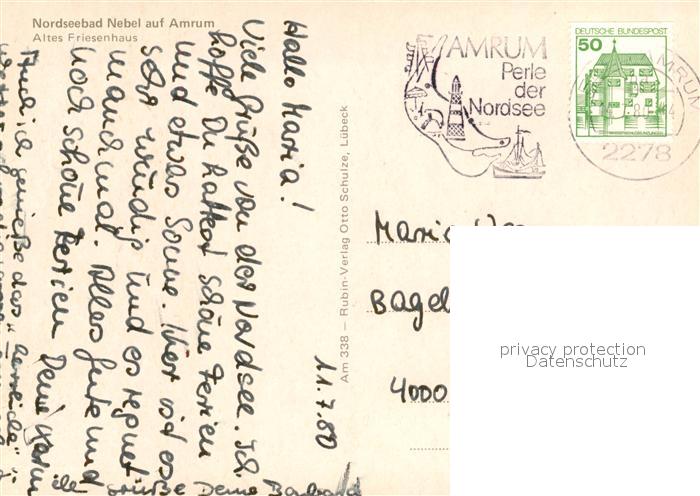 Nordseebad Nebel auf Amrum
Altes Friesenhaus
AMRUM
Perle
der
Nordsee
DEUTSCHE BUNDESPOST
50
2278
Hallo Maria!
Viele Grüße von der Nordsee. Ich
hoffe Du hattest schöne Ferien
und etwas Sonne. Hier ist es
sehr windig und es regnet
manchmal. Alles Gute und
noch schöne Ferien Deine
Auch ich genieße das
Grüße Deine Barbara
11.7.80
Am 338 — Rubin-Verlag Otto Schulze, Lübeck
Maria
Bagel
4000
privacy protection
Datenschutz